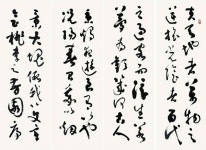 夫天地者萬物之
逆旅光陰者百代
之過客而浮生若
夢為歡幾何古人
秉燭夜遊良有以也
況陽春召我以烟
景大塊假我以文章
會桃李之芳園序